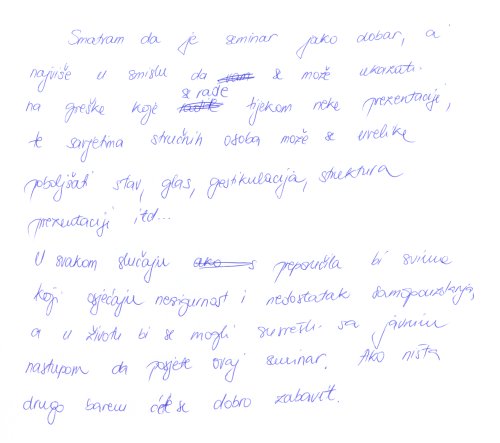 Smatram da je seminar jako dobar, a
najviše u smislu da se može ukazati
na greške koje se rade tijekom neke prezentacije,
te savjetima stručnih osoba može se uvelike
poboljšati stav, glas, gestikulacija, struktura
prezentacije itd...
U svakom slučaju preporučila bi svima
koji osjećaju nesigurnost i nedostatak samopouzdanja,
a u životu bi se mogli susresti sa javnim
nastupom da posjete ovaj seminar. Ako ništa
drugo barem će se dobro zabavit.